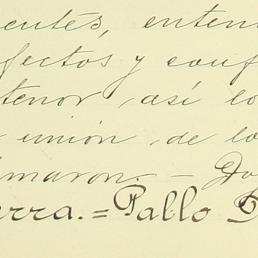 centés, enten
fectos y conf
tenor, así lo
unión de lo
maron. - Do
erra. = Pablo